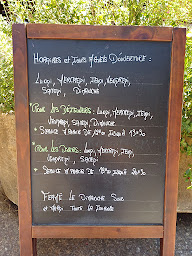 Horaires et Jours d'Ouverture :
Lundi, Mercredi, Jeudi, Vendredi,
Samedi, Dimanche
Pour les Déjeuners : Lundi, Mercredi, Jeudi,
Vendredi, Samedi, Dimanche
* Service à partir de jusqu'à 13h30
Pour les Diners : Lundi, Mercredi, Jeudi,
Vendredi, Samedi
* Service à partir de jusqu'à
Fermé le Dimanche Soir
et Mardi Toute la Journée